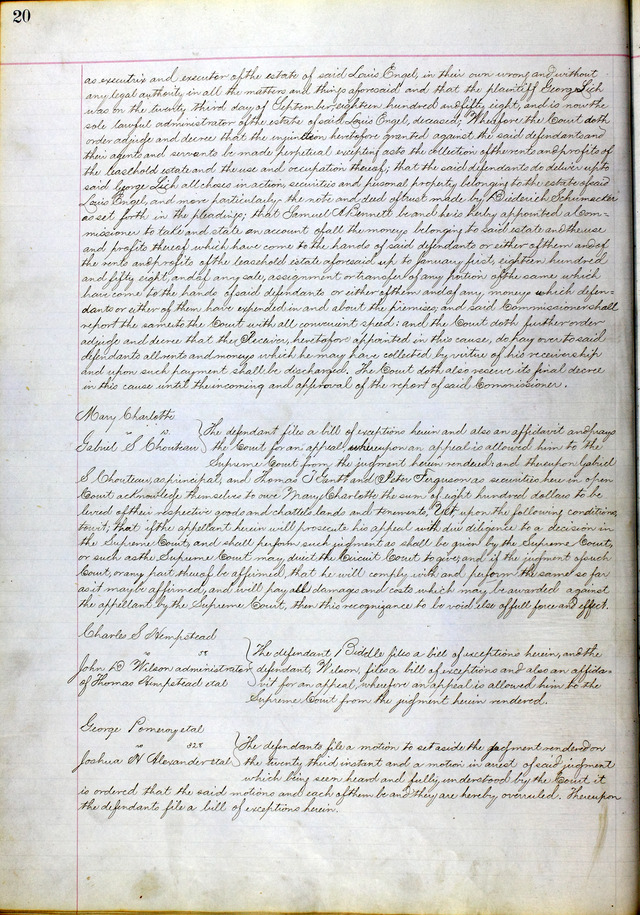 20
as executrix and executor of the estate of said Louis Engel, in their own wrong and without
any legal authority in all the matters and things aforesaid and that the plaintiff George Lich
was on the twenty third day of September, eighteen hundred and fifty eight, and is now the
sole lawful administrator of the estate of said Louis Engel, deceased; Wherefore the Court doth
order adjudge and decree that the injunction heretofore granted against the said defendants and
their agents and servants be made perpetual except in as to the collection of the rents and profits of
the leasehold estate and the use and occupation thereof; that the said defendants do deliver up to
said George Lich all choses in action, securities and personal property belonging to the estate of said
Louis Engel, and more particularly the note and deed of trust made by Diederich Schumacker
as set forth in the pleadings; that Samuel A Bennett be and he is hereby appointed a Com-
missioner to take and state an account of all the moneys belonging to said estate and the use
and profits thereof which have come to the hands of said defendants or either of them and of
the rents and profits of the leasehold estate aforesaid up to January first, eighteen hundred
and fifty eight, and of any sale, assignment or transfer of any portion of the same which
have come to the hands of said defendants or either of them and of any moneys which defen-
dants or either of them have expended in and about the premises, and said Commissioner shall
report the same to the Court with all convenient speed: and the Court doth further order
adjudge and decree that the Receiver, heretofore appointed in this cause, do pay over to said
defendants all rents and moneys which he may have collected by virtue of his receivership
and upon such payment shall be discharged. The Court doth also reserve its final decree
in this cause until the incoming and approval of the report of said Commissioner.
Mary Charlotte
vs
Gabriel S. Chouteau } The defendant files a bill of exceptions herein and also an affidavit and prays
the Court for an appeal, whereupon an appeal is allowed him to the
Supreme Court from the judgment herein rendered: and thereupon Gabriel
S Chouteau, as principal, and Thomas T Gantt and Peter Ferguson as securities here in open
Court acknowledge themselves to owe Mary Charlotte the sum of eight hundred dollars to be
levied of their respective goods and chattels lands and tenements. Yet upon the following conditions,
to wit, that if the appellant herein will prosecute his appeal with due diligence to a decision in
the Supreme Court, and shall perform such judgment as shall be given by the Supreme Court,
or such as the Supreme Court may direct the Circuit Court to give, and if the judgment of such
Court, or any part thereof be affirmed, that he will comply with and perform the same so far
as it may be affirmed, and will pay all damages and costs which may be awarded against
the appellant by the Supreme Court, then this recognizance to be void else of full force and effect.
Charles S Hempstead
vs
John D Wilson administrator
of Thomas Hempstead etal } The defendant Biddle files a bill of exceptions herein, and the
defendant, Wilson, files a bill of exceptions and also an affida-
vit for an appeal, wherefore an appeal is allowed him to the
Supreme Court from the judgment herein rendered.
George Pomeroy etal
vs 328
Joshua N Alexander etal } The defendants file a motion to set aside the judgment rendered on
the twenty third instant and a motion in arrest of said judgment
which being seen heard and fully understood by the Court it
is ordered that the said motions and each of them be and they are hereby overruled. Thereupon
the defendants file a bill of exceptions herein.